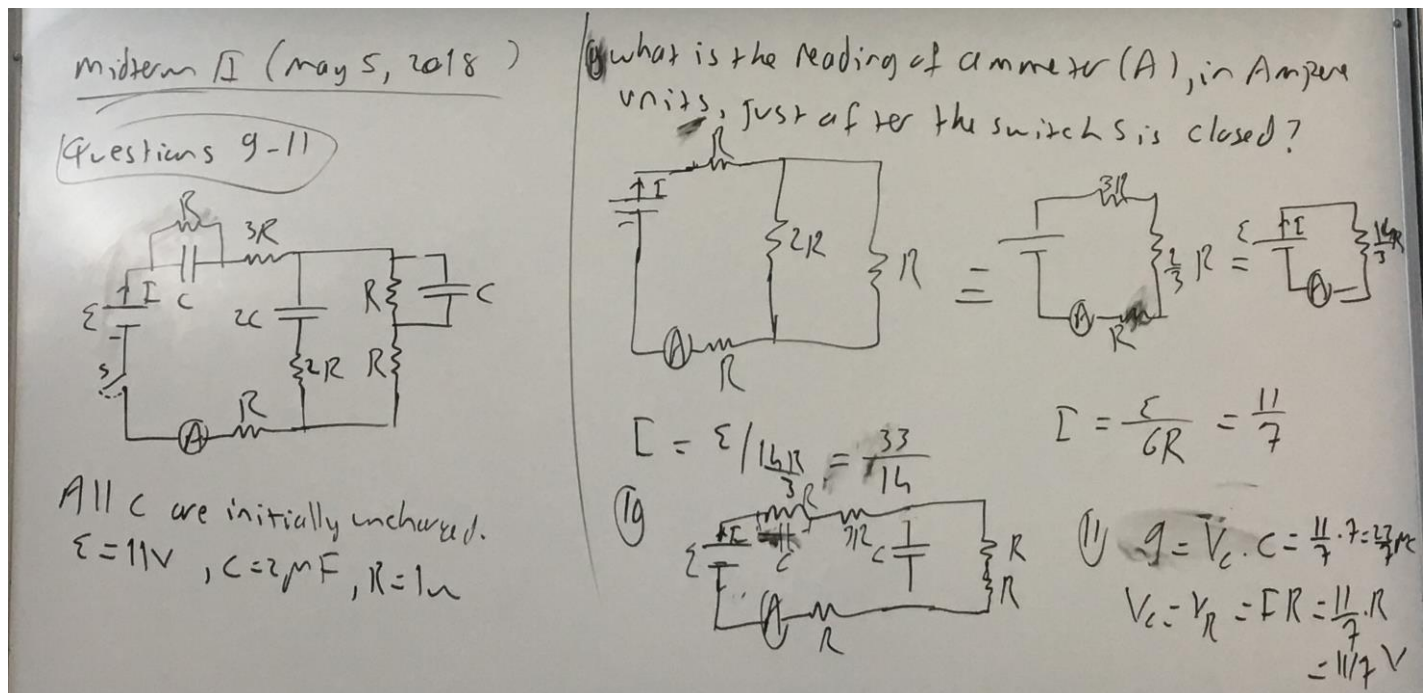 midterm II (may 5, 2018)
Questions 9-11
R
3R
C
I
ε
2C
R
C
S
2R
R
R
A
All C are initially uncharged.
ε=11V, C=2μF, R=1Ω
what is the reading of ammeter (A), in Ampere
units, just after the switch S is closed?
R
I
2R
R
A
R
≡
3R
2/3 R
A
R
=
ε
I
14/3 R
A
I = ε / 14R/3 = 33/14
I = ε/6R = 11/7
10
R
ε
I
C
3R
C
R
R
A
R
11 q = Vc . C = 11/7 . 7 = 22/7 μC
Vc = VR = IR = 11/7 . R
= 11/7 V